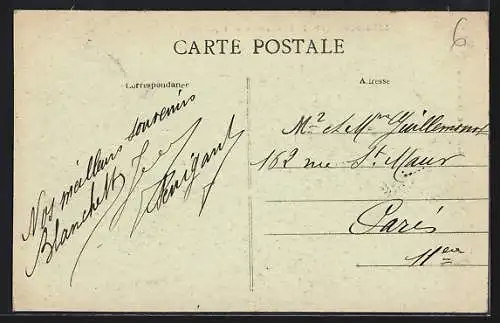 6
CARTE POSTALE
Correspondance
Adresse
Nos meilleurs souvenirs
Blanchett
Mr et Mme Guillemont
162 rue St Maur
Paris
11eme